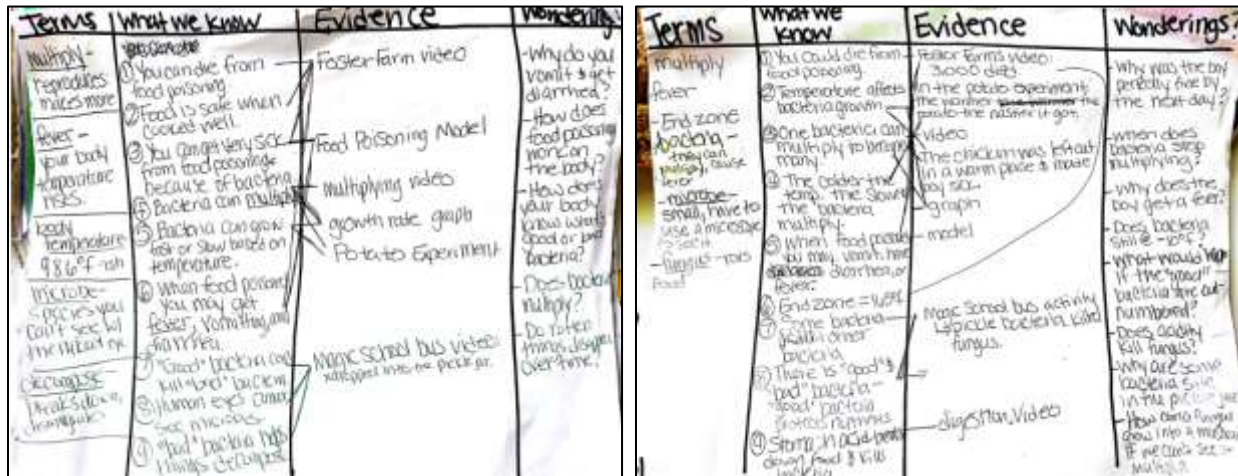 Terms
What we know
Evidence
Wonderings
multiply -
reproduces
makes more
fever -
your body
temperature
rises.
body
temperature
98.6°f -ish
microbe -
species you
can't see w/
decompose -
breaks down,
① You can die from
food poisoning
② Food is safe when
cooked well.
③ You can get very sick
from food poisoning
because of bacteria
④ Bacteria can multiply
⑤ Bacteria can grow
fast or slow based on
temperature.
⑥ When food poisoned
you may get
fever, vomitting, and
diarrhea.
⑦ "Good" bacteria can
kill "bad" bacteria
⑧ Human eyes cannot
see microbes.
⑨ "bad" bacteria helps
things decompose
Foster Farm video
Food Poisoning Model
multiplying video
growth rate graph
Potato Experiment
Magic School bus video:
dropped into the pickle jar.
- Why do you
vomit & get
diarrhea?
- How does
food poisoning
work on
the body?
- How does
your body
know what's
good or bad
bacteria?
- Does bacteria
multiply?
- Do rotten
things disappear
over time?
Terms
What we
know
Evidence
Wonderings?
multiply
fever
- End zone
bacteria -
they can
multiply, cause
fever
- microbe -
small, have to
use a microscope
to see it
- fungus - rots
food
① You could die from
food poisoning
② Temperature affects
bacteria growth
③ One bacteria can
multiply to become
many.
④ The colder the
temp. the slower
the bacteria
multiply.
⑤ When food poisoned
you may vomit, have
diarrhea, or
fever.
⑥ End zone =
⑦ Some bacteria
kill other
bacteria
⑧ There is "good" &
"bad" bacteria -
"good" bacteria
protects
⑨ Stomach acid breaks
down food & kills
Foster Farms video:
3,000
In the potato experiment:
the warmer the
potato the nastier it got.
video
The chicken was left out
in a warm place & made
boy sick.
graph
model
Magic School bus activity
pickle bacteria killed
fungus.
digestion video
- Why was the boy
perfectly fine by
the next day?
- when does
bacteria stop
multiplying?
- Why does the
boy get a fever?
- Does bacteria
- What would happen
if the "good"
bacteria are out-
numbered?
- Does acidity
kill fungus?
- Why are some
bacteria still
in the pickle jar?
- How can a fungus
grow into a mushroom
if we can't see